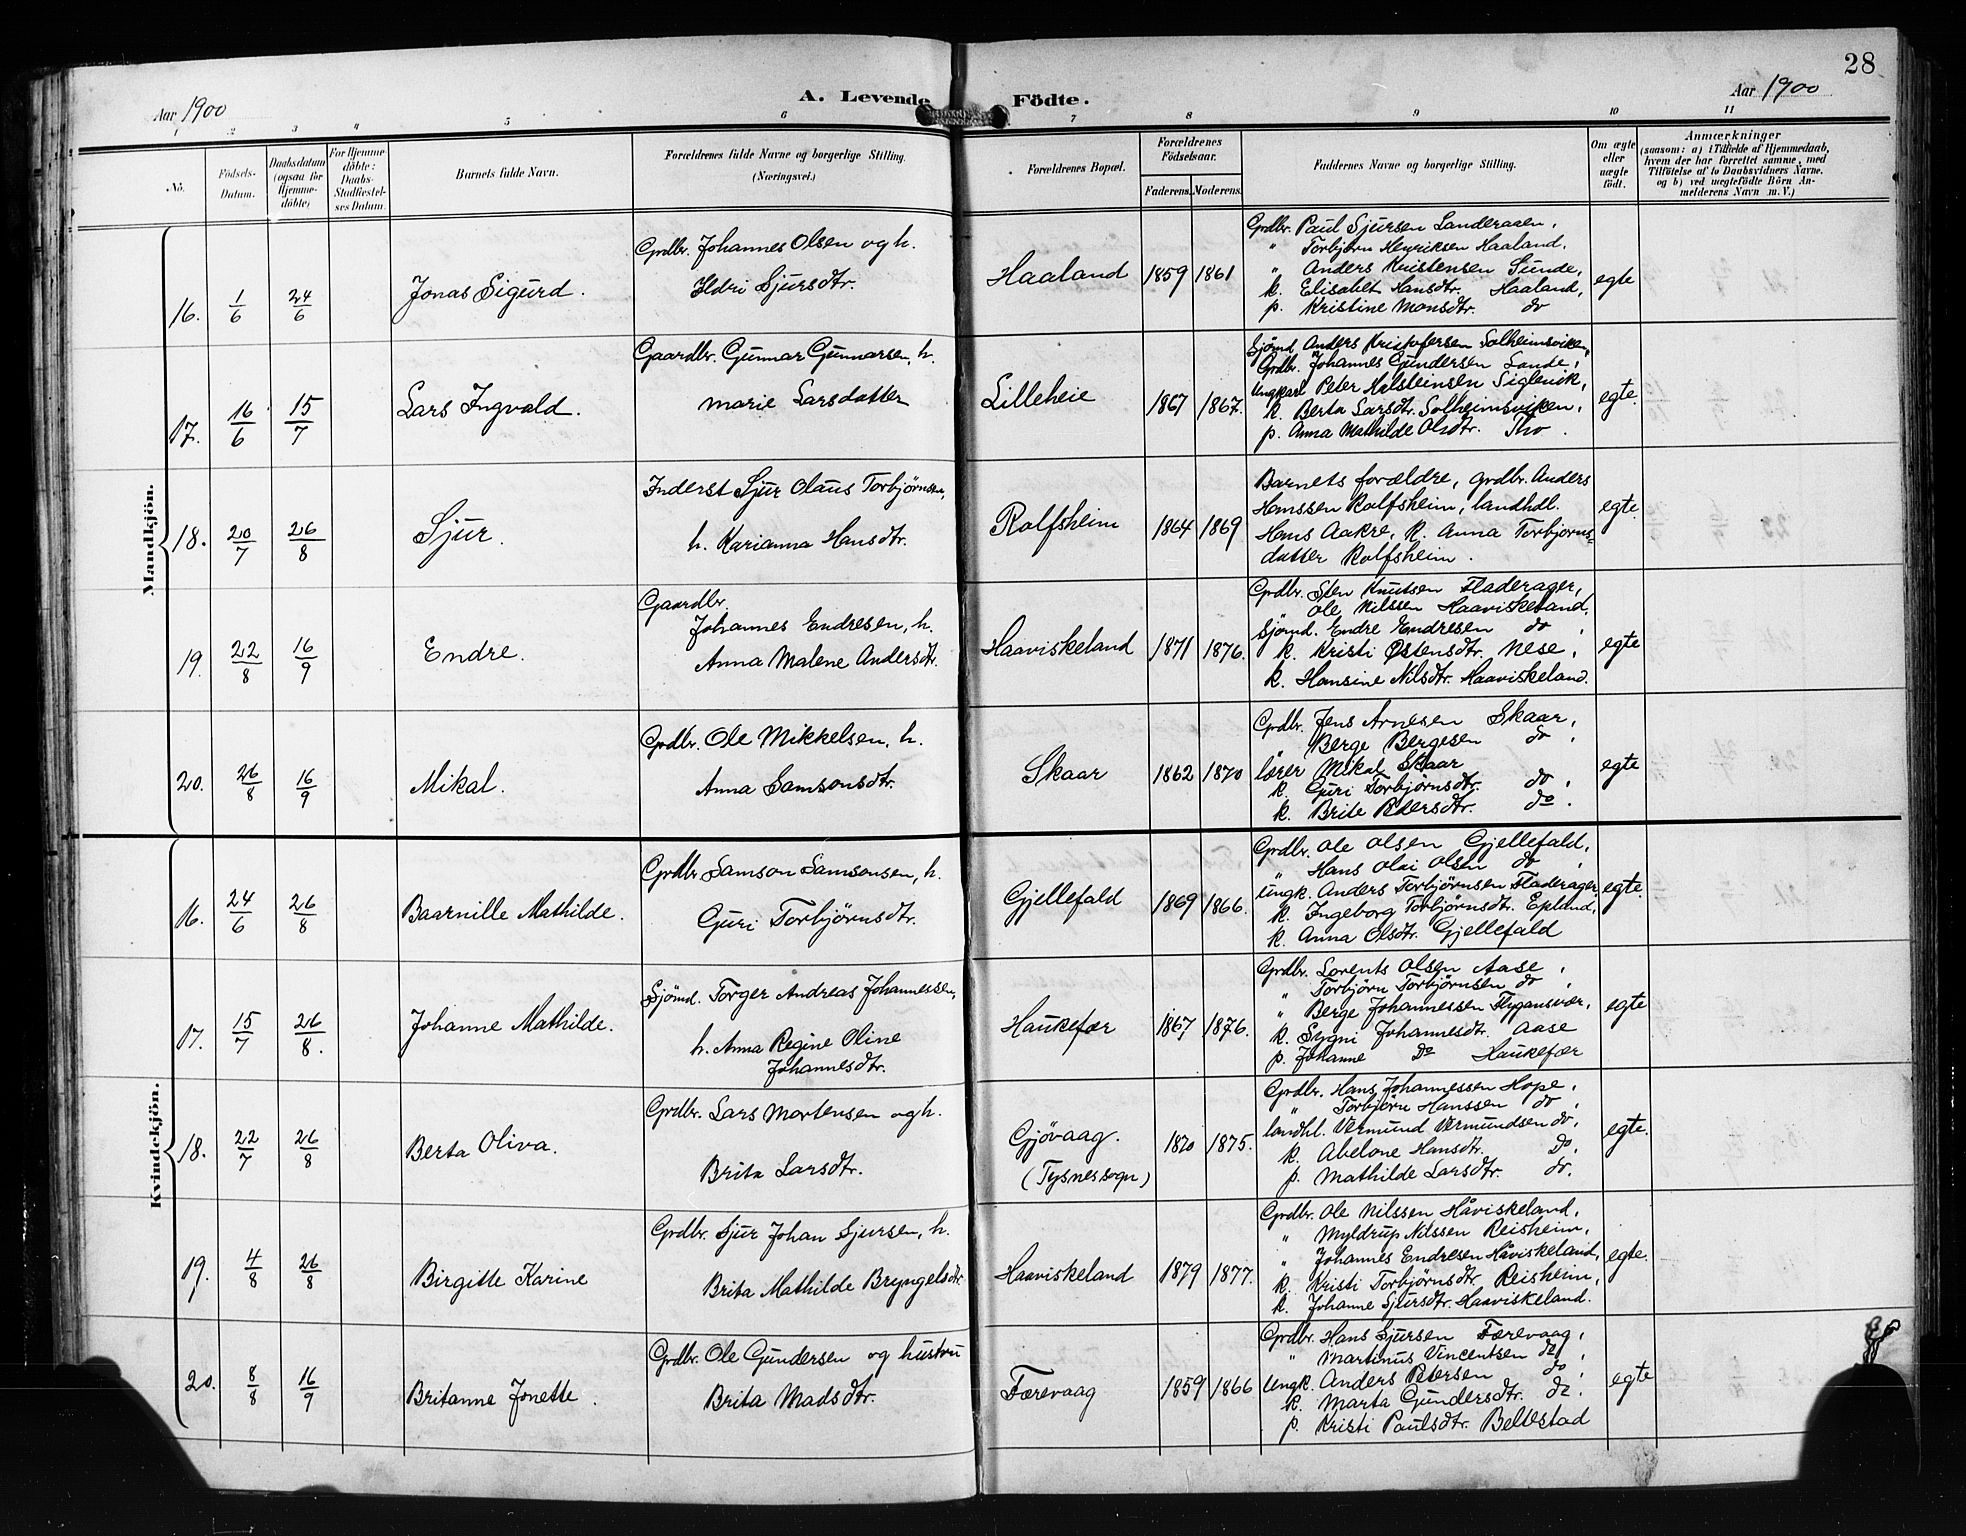 28
Aar 1900
A. Levende Födte.
Aar 1900
1 2 3 4 5 6 7 8 9 10 11
No.
Födsels-Datum.
Daabsdatum (ogsaa for Hjemme-döbte)
For Hjemme-döbte: Daabs-Stadfæstel-ses Datum.
Barnets fulde Navn.
Forældrenes fulde Navne og borgerlige Stilling. (Næringsvei.)
Forældrenes Bopæl.
Forældrenes Födselsaar.
Faderens. Moderens.
Faddernes Navne og borgerlige Stilling.
Om ægte eller uægte födt.
Anmærkninger
(saasom: a) i Tilfælde af Hjemmedaab,
hvem der har forrettet samme, med
Tilföielse af to Daabsvidners Navne.
og b) ved uægtefödte Börn An-
melderens Navn m. V.)
Mandkjön.
16. 1/6 24/6 Jonas Sigurd.
Grdbr. Johannes Olsen og h.
Ildri Sjursdtr.
Haaland 1859 1861
Grdbr. Paul Sjursen Landeraaen,
" Torbjörn Henriksen Haaland,
" Anders Kristensen Sunde,
k. Elisabet Hansdtr. Haaland,
p. Kristine Monsdtr. do
egte
17. 16/6 15/7 Lars Ingvald.
Gaardbr. Gunnar Gunnarsen, h.
Marie Larsdatter
Lilleheie 1867 1867.
Sjömd. Anders Kristofersen Solheimsviken,
Grdbr. Johannes Gundersen Sande,
Ungkarl Peter Halsteinsen Siglevik,
k. Berta Larsdtr. Solheimsviken,
p. Anna Mathilde Olsdtr. Tho.
egte.
18. 20/7 26/8 Sjur.
Inderst Sjur Olaus Torbjörnsen,
h. Karianna Hansdtr.
Rolfsheim 1864 1869
Barnets forældre, grdbr. Anders
Hanssen Rolfsheim, landhdl.
Hans Aakre, k. Anna Torbjorns-
datter Rolfsheim.
egte.
19. 22/8 16/9 Endre.
Gaardbr.
Johannes Endresen, h.
Anna Malene Andersdtr.
Haaviskeland 1871 1876.
Grdbr. Sten Knutsen Fladerager,
Ole Nilssen Haaviskeland,
Sjömd. Endre Endresen do,
k. Kristi Östensdtr. Nese,
k. Hansine Nilsdtr. Haaviskeland.
egte
20. 26/8 16/9 Mikal.
Grdbr. Ole Mikkelsen, h.
Anna Samsonsdtr.
Skaar 1862 1870
Grdbr. Jens Arnesen Skaar,
" Berge Bergesen do,
lærer Mikal Skaar
k. Guri Torbjörnsdtr. do,
k. Brite Petersdtr. do.
egte
Kvindekjön.
16. 24/6 26/8 Baarnille Mathilde.
Grdbr Samson Samsonsen, h.
Guri Torbjörnsdtr.
Gjellefald 1869 1866.
Grdbr. Ole Olsen Gjellefald,
" Hans Olai Olsen do,
ungk. Anders Torbjörnsen Fladerager
k. Ingeborg Torbjörnsdtr. Epland,
k. Anna Olsdtr. Gjellefald
egte.
17. 15/7 26/8. Johanne Mathilde.
Sjömd. Torger Andreas Johannessen,
h. Anna Regine Oline
Johannesdtr.
Haukefær 1867 1876.
Grdbr. Lorents Olsen Aase,
" Torbjörn Torbjörnsen do,
" Berge Johannessen Flygansvær,
k. Sygni Johannesdtr. Aase
p. Johanne Do Haukefær
egte
18. 22/7 26/8 Berta Oliva.
Grdbr. Lars Mortensen og h.
Brita Larsdtr.
Gjövaag.
(Tysnessogn) 1870 1875.
Grdbr. Hans Johannessen Hope,
" Torbjörn Hanssen do,
landhl. Vermund Vermundsen do,
k. Abelone Hansdtr. Do,
p. Mathilde Larsdtr. do.
egte.
19. 4/8 26/8 Birgitte Karine
Grdbr. Sjur Johan Sjursen, h.
Brita Mathilde Bryngelsdtr
Haaviskeland 1879 1877.
Grdbr. Ole Nilssen Håviskeland,
" Myldrup Nilssen Reisheim,
" Johannes Endresen Håviskeland,
k. Kristi Torbjörnsdtr. Reisheim,
k. Johanne Sjursdtr. Haaviskeland.
egte.
20. 8/8 16/9 Britanne Jonette.
Grdbr. Ole Gundersen og hustru
Brita Madsdtr.
Færevaag 1859 1866
Grdbr. Hans Sjursen Færevaag,
" Martinus Vincentsen do,
Ungk. Anders Petersen do,
k. Marta Gundersdtr. do.
p. Kristi Paulsdtr. Beltestad
egte